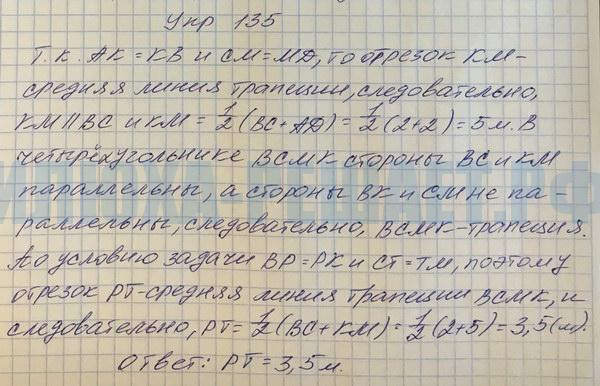 Упр 135
Т.к. АК = КВ и СМ = МД, то отрезок КМ -
средняя линия трапеции, следовательно,
КМ || ВС и КМ = 1/2 (ВС + АД) = 1/2 (2+2) = 5 м. В
четырёхугольнике ВСМК стороны ВС и КМ
параллельны, а стороны ВК и СМ не па-
раллельны, следовательно, ВСМК - трапеция.
По условию задачи ВР = РК и СТ = ТМ, поэтому
отрезок РТ - средняя линия трапеции ВСМК, и
следовательно, РТ = 1/2 (ВС + КМ) = 1/2 (2+5) = 3,5 (м).
Ответ: РТ = 3,5 м.